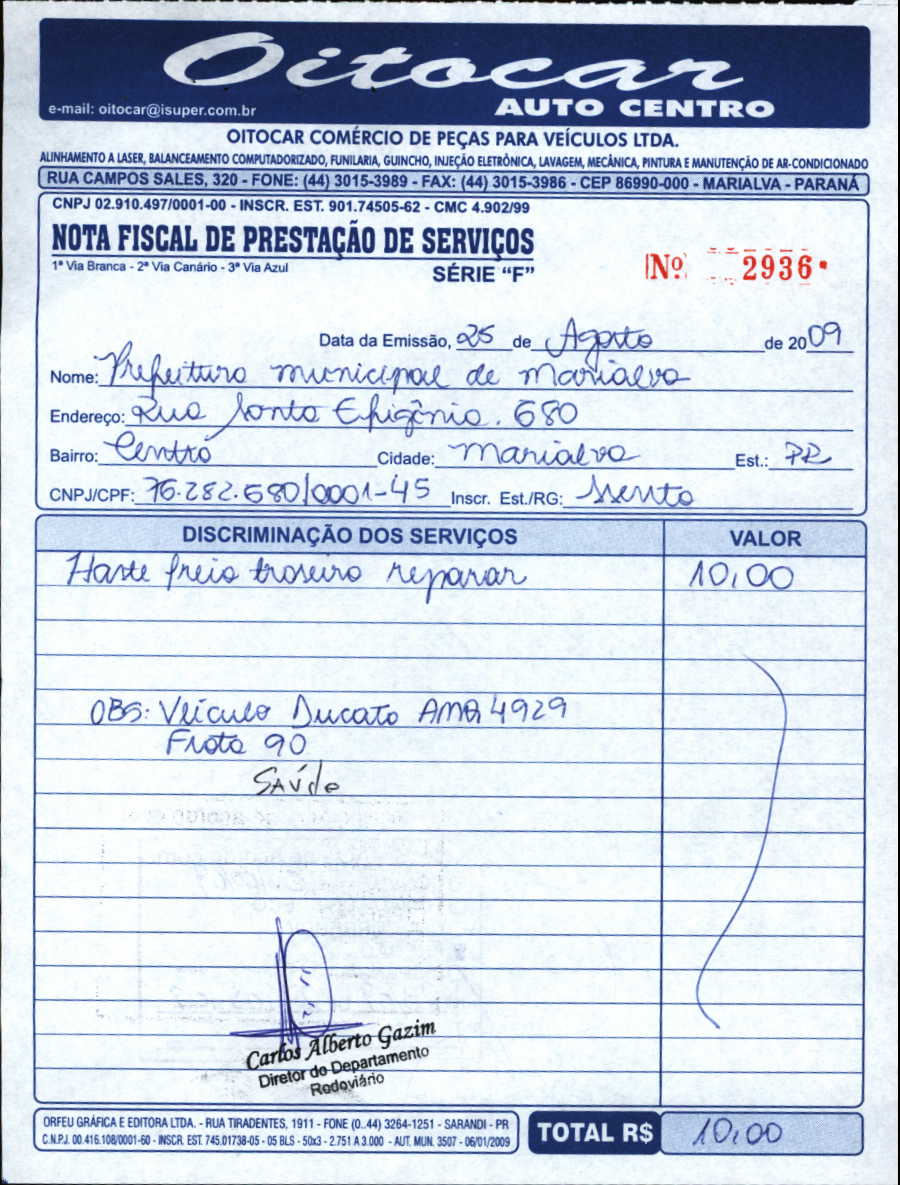 Oitocar
e-mail: oitocar@isuper.com.br
AUTO CENTRO
OITOCAR COMÉRCIO DE PEÇAS PARA VEÍCULOS LTDA.
ALINHAMENTO A LASER, BALANCEAMENTO COMPUTADORIZADO, FUNILARIA, GUINCHO, INJEÇÃO ELETRÔNICA, LAVAGEM, MECÂNICA, PINTURA E MANUTENÇÃO DE AR-CONDICIONADO
RUA CAMPOS SALES, 320 - FONE: (44) 3015-3989 - FAX: (44) 3015-3986 - CEP 86990-000 - MARIALVA - PARANÁ
CNPJ 02.910.497/0001-00 - INSCR. EST. 901.74505-62 - CMC 4.902/99
NOTA FISCAL DE PRESTAÇÃO DE SERVIÇOS
1ª Via Branca - 2ª Via Canário - 3ª Via Azul
SÉRIE "F"
Nº 2936
Data da Emissão, 25 de Agosto de 2009
Nome: Prefeitura municipal de Marialva
Endereço: Rua Santa Efigênia. 680
Bairro: Centro Cidade: Marialva Est.: PR
CNPJ/CPF: 76.282.680/0001-45 Inscr. Est./RG: Isento
DISCRIMINAÇÃO DOS SERVIÇOS VALOR
Haste freio traseiro reparar 10,00
OBS: Veículo Ducato AMA 4929
Frota 90
SAÚde
Carlos Alberto Gazim
Diretor do Departamento
Rodoviário
ORFEU GRÁFICA E EDITORA LTDA. - RUA TIRADENTES, 1911 - FONE (0..44) 3264-1251 - SARANDI - PR
C.N.P.J. 00.416.108/0001-60 - INSCR. EST. 745.01738-05 - 05 BLS - 50x3 - 2.751 A 3.000 - AUT. MUN. 3507 - 06/01/2009
TOTAL R$ 10,00